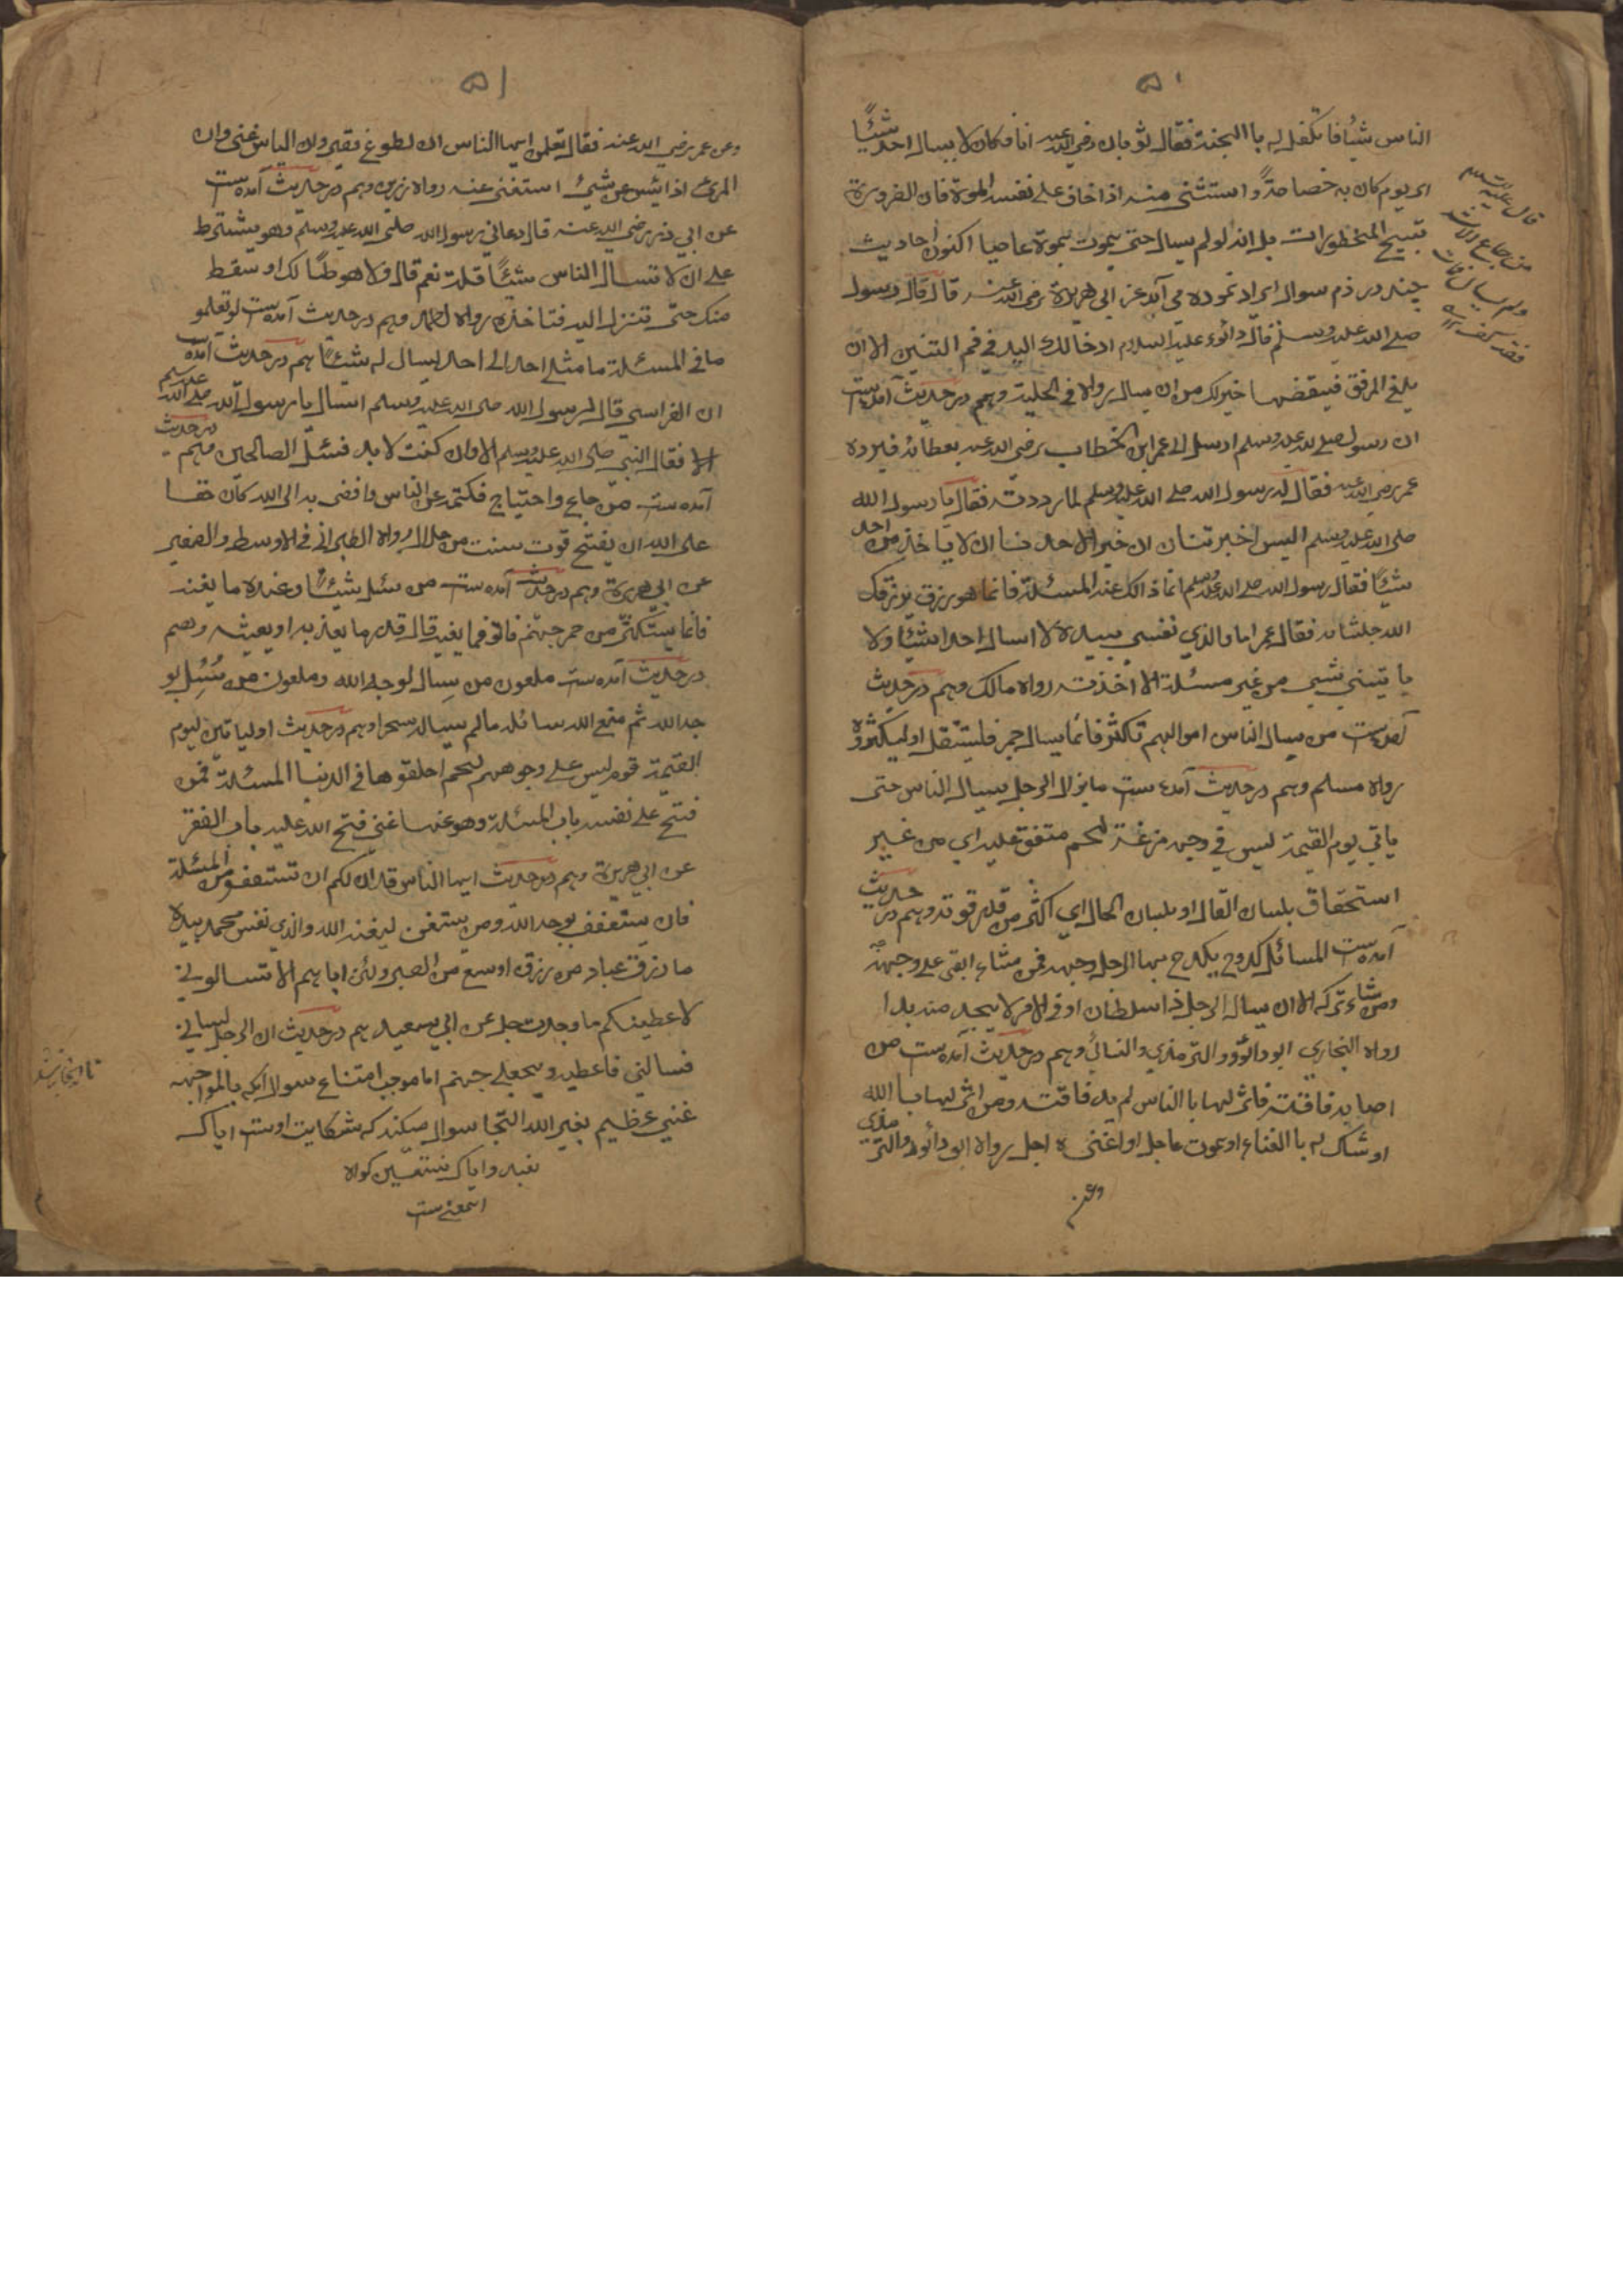 ٥٠
الناس شیُا فاتکفل له باالجنة فقال ثوبان رضی الله عنه انا فکان لا یسال احد شیئًا
ای یوم کان به خصاصةً و استثنی منه اذا خاف علی نفسه الموة فان الضرورة
تبیح المحظورات بل انه لو لم یسال حتی یموت یموة عاصیا اکنون احادیث
چند در ذم سوال ایراد نموده می آید عن ابی هریرة رضی الله عنه قال قال رسول
صلی الله علیه وسلم قال دائود علیه السلام ادخالک الید فی فم التنین الا ان
یلغ المرفق فیقضها خیرلک من ان یسال رواه فی الحلیة وهم در حدیث آمده ست
ان رسول صلی الله علیه وسلم ارسل الی عمر ابن الخطاب رضی الله عنه بعطائه فرده
عمر رضی الله عنه فقال له رسول الله صلی الله علیه وسلم لما رددته فقال یا رسول الله
صلی الله علیه وسلم الیس اخبرتنا ان خیر الاحدنا ان لا یاخذ من احد
شیئًا فقال رسول الله صلی الله علیه وسلم انما ذالک عند المسئلة فانما هو رزق یرزقک
الله جلشانه فقال عمر اما والذی نفسی بیده لا اسال احدا شیئا ولا
یاتینی شیی من غیر مسئلة الا اخذته رواه مالک وهم در حدیث
آمده ست من یسال الناس اموالهم تکثر فانما یسال جمر فلیستقل او لیکثره
رواه مسلم وهم در حدیث آمده ست مایزال الرجل یسال الناس حتی
یاتی یوم القیمة لیس فی وجهه مزغة لحم متفق علیه ای من غیر
استحقاق بلسان القال او بلسان الحال ای اکثر من قدر قوته وهم در حدیث
آمده ست المسائل کدوح یکدح بها الرجل وجهه فمن شاء ابقی علی وجهه
ومن شاء ترکه الا ان یسال الرجل ذا سلطان او فی الامر لا یجد منه بدا
رواه البخاری ابو دائود و الترمذی والنسائی وهم در حدیث آمده ست من
اصابه فاقة فانزلها با الناس لم یسد فاقته ومن انزلها با الله
اوشک له با الغناء او بموت عاجل او اغنی ه اجل رواه ابو دائود والترمذی
وعن
قال علیه السلام
من جاع
ولم یسال
٥١
وعن عمر رضی الله عنه فقال تعلمن ایها الناس ان الطوغ فقیر وان الیاس غنی وان
المرئ اذا ائس عن شیئ استغنی عنه رواه رزین وهم در حدیث آمده ست
عن ابی ذر رضی الله عنه قال دعانی رسول الله صلی الله علیه وسلم وهو یشترط
علی ان لا تسال الناس شیئًا قلت نعم قال ولا سوطًا لک او سقط
منک حتی تنزل الیه فتاخذه رواه احمد وهم در حدیث آمده ست لو تعلمو
ما فی المسئلة ما مشی احد الی احد یسال له شیئًا هم در حدیث آمده ست
ان الفراسی قال لرسول الله صلی الله علیه وسلم اسال یا رسول الله صلی الله علیه وسلم
فقال النبی صلی الله علیه وسلم لا وان کنت لابد فسئل الصالحین وهم در حدیث
آمده ست من جاع واحتیاج فکتمه عن الناس وافضی به الی الله کان حقا
علی الله ان یفتح قوت سنت من حلال رواه الطبرانی فی الاوسط والصغیر
عن ابی هریرة وهم در حدیث آمده ست من سئل شیئًا وعنده ما یغنه
فانما یستکثر من جمر جهنم قالو فما یغیه قال قدر ما یغذیه او یعیشه وهم
در حدیث آمده ست ملعون من سال لوجه الله و ملعون من سُئِل بو
جه الله ثم منع الله سائله مالم یسال سحرا وهم در حدیث اولیاتین یوم
القیمة قوم لیس علی وجوههم لحم احلقوها فی الدنیا المسئلة فمن
فتح علی نفسه باب المسئلة وهو عنها غنی فتح الله علیه باب الفقر
عن ابی هریرة وهم در حدیث ایها الناس قد ان لکم ان تستعففو من المسئلة
فان یستعفف یوجد الله ومن یستغن لیغنه الله والذی نفس محمد بیده
ما رزق عباد من رزق اوسع من الصبر ولئن ابا هم الا تسالونی
لاعطینکم ما وجدت جل عن ابی سعید هم در حدیث ان الرجل یسالنی
فسالنی فاعطیه ویجعلی جهنم اما موجب امتناع سوال آنکه بالمواجهه
غنی عظیم بغیر الله التجا سوال میکند که شکایت اوست ایاک
نعبد وایاک نستعین کواه
اسمعنی ست